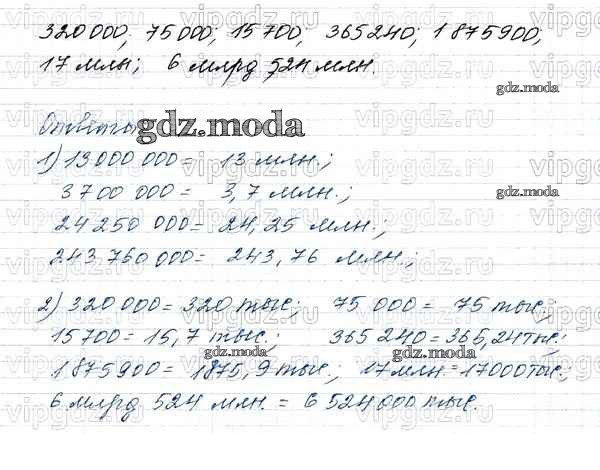 320 000; 75 000; 15 700; 365 240; 1 875 900;
17 млн; 6 млрд 524 млн.
Ответы gdz.moda
1) 13 000 000 = 13 млн.;
3 700 000 = 3,7 млн.;
24 250 000 = 24,25 млн.;
243 760 000 = 243,76 млн.;
2) 320 000 = 320 тыс; 75 000 = 75 тыс.;
15 700 = 15,7 тыс.; 365 240 = 365,24 тыс.;
gdz.moda gdz.moda
1 875 900 = 1875,9 тыс.; 17 млн. = 17000 тыс.;
6 млрд 524 млн. = 6 524 000 тыс.
gdz.moda
gdz.moda
vipgdz.ru